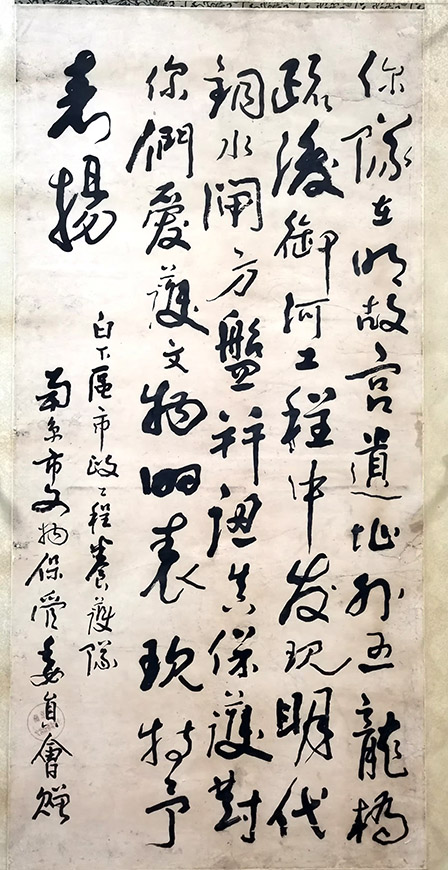 你隊在明故宮遺址外五龍橋
疏浚御河工程中发现明代
銅水閘方盤并認真保護對
你們愛護文物的表现特予
表揚
白下區市政工程養護隊
南京市文物保管委員會贈